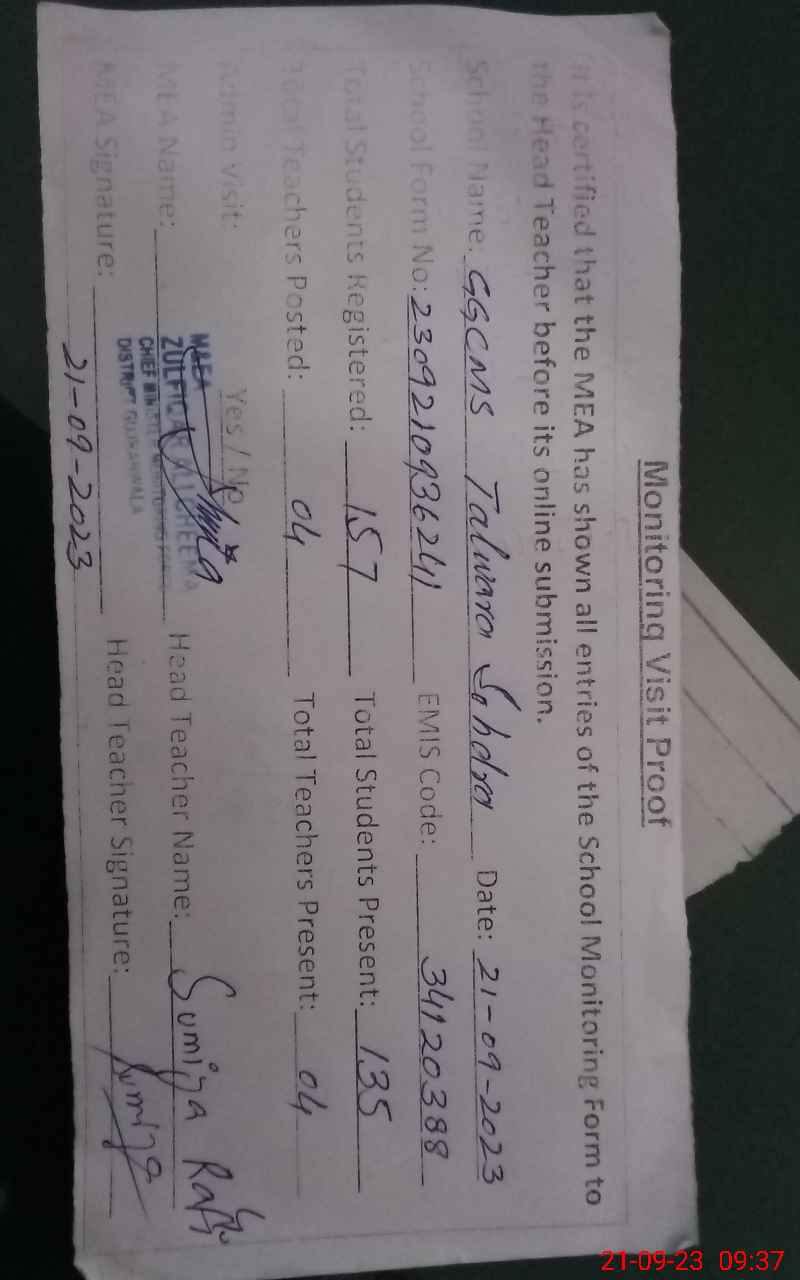 Monitoring Visit Proof
It is certified that the MEA has shown all entries of the School Monitoring Form to
the Head Teacher before its online submission.
School Name: GGCMS Talwara Sohdra Date: 21-09-2023
School Form No: 2309210936241 EMIS Code: 34120388
Total Students Registered: 157 Total Students Present: 135
Total Teachers Posted: 04 Total Teachers Present: 04
Admin Visit: Yes / No
MEA Name: Head Teacher Name: Sumiya Rafi
MEA Signature: Head Teacher Signature: Sumiya
MAEA
ZULFIQAR ALI CHEEMA
CHIEF MINISTER MONITORING FORCE
DISTRICT GUJRANWALA
21-09-2023
21-09-23 09:37